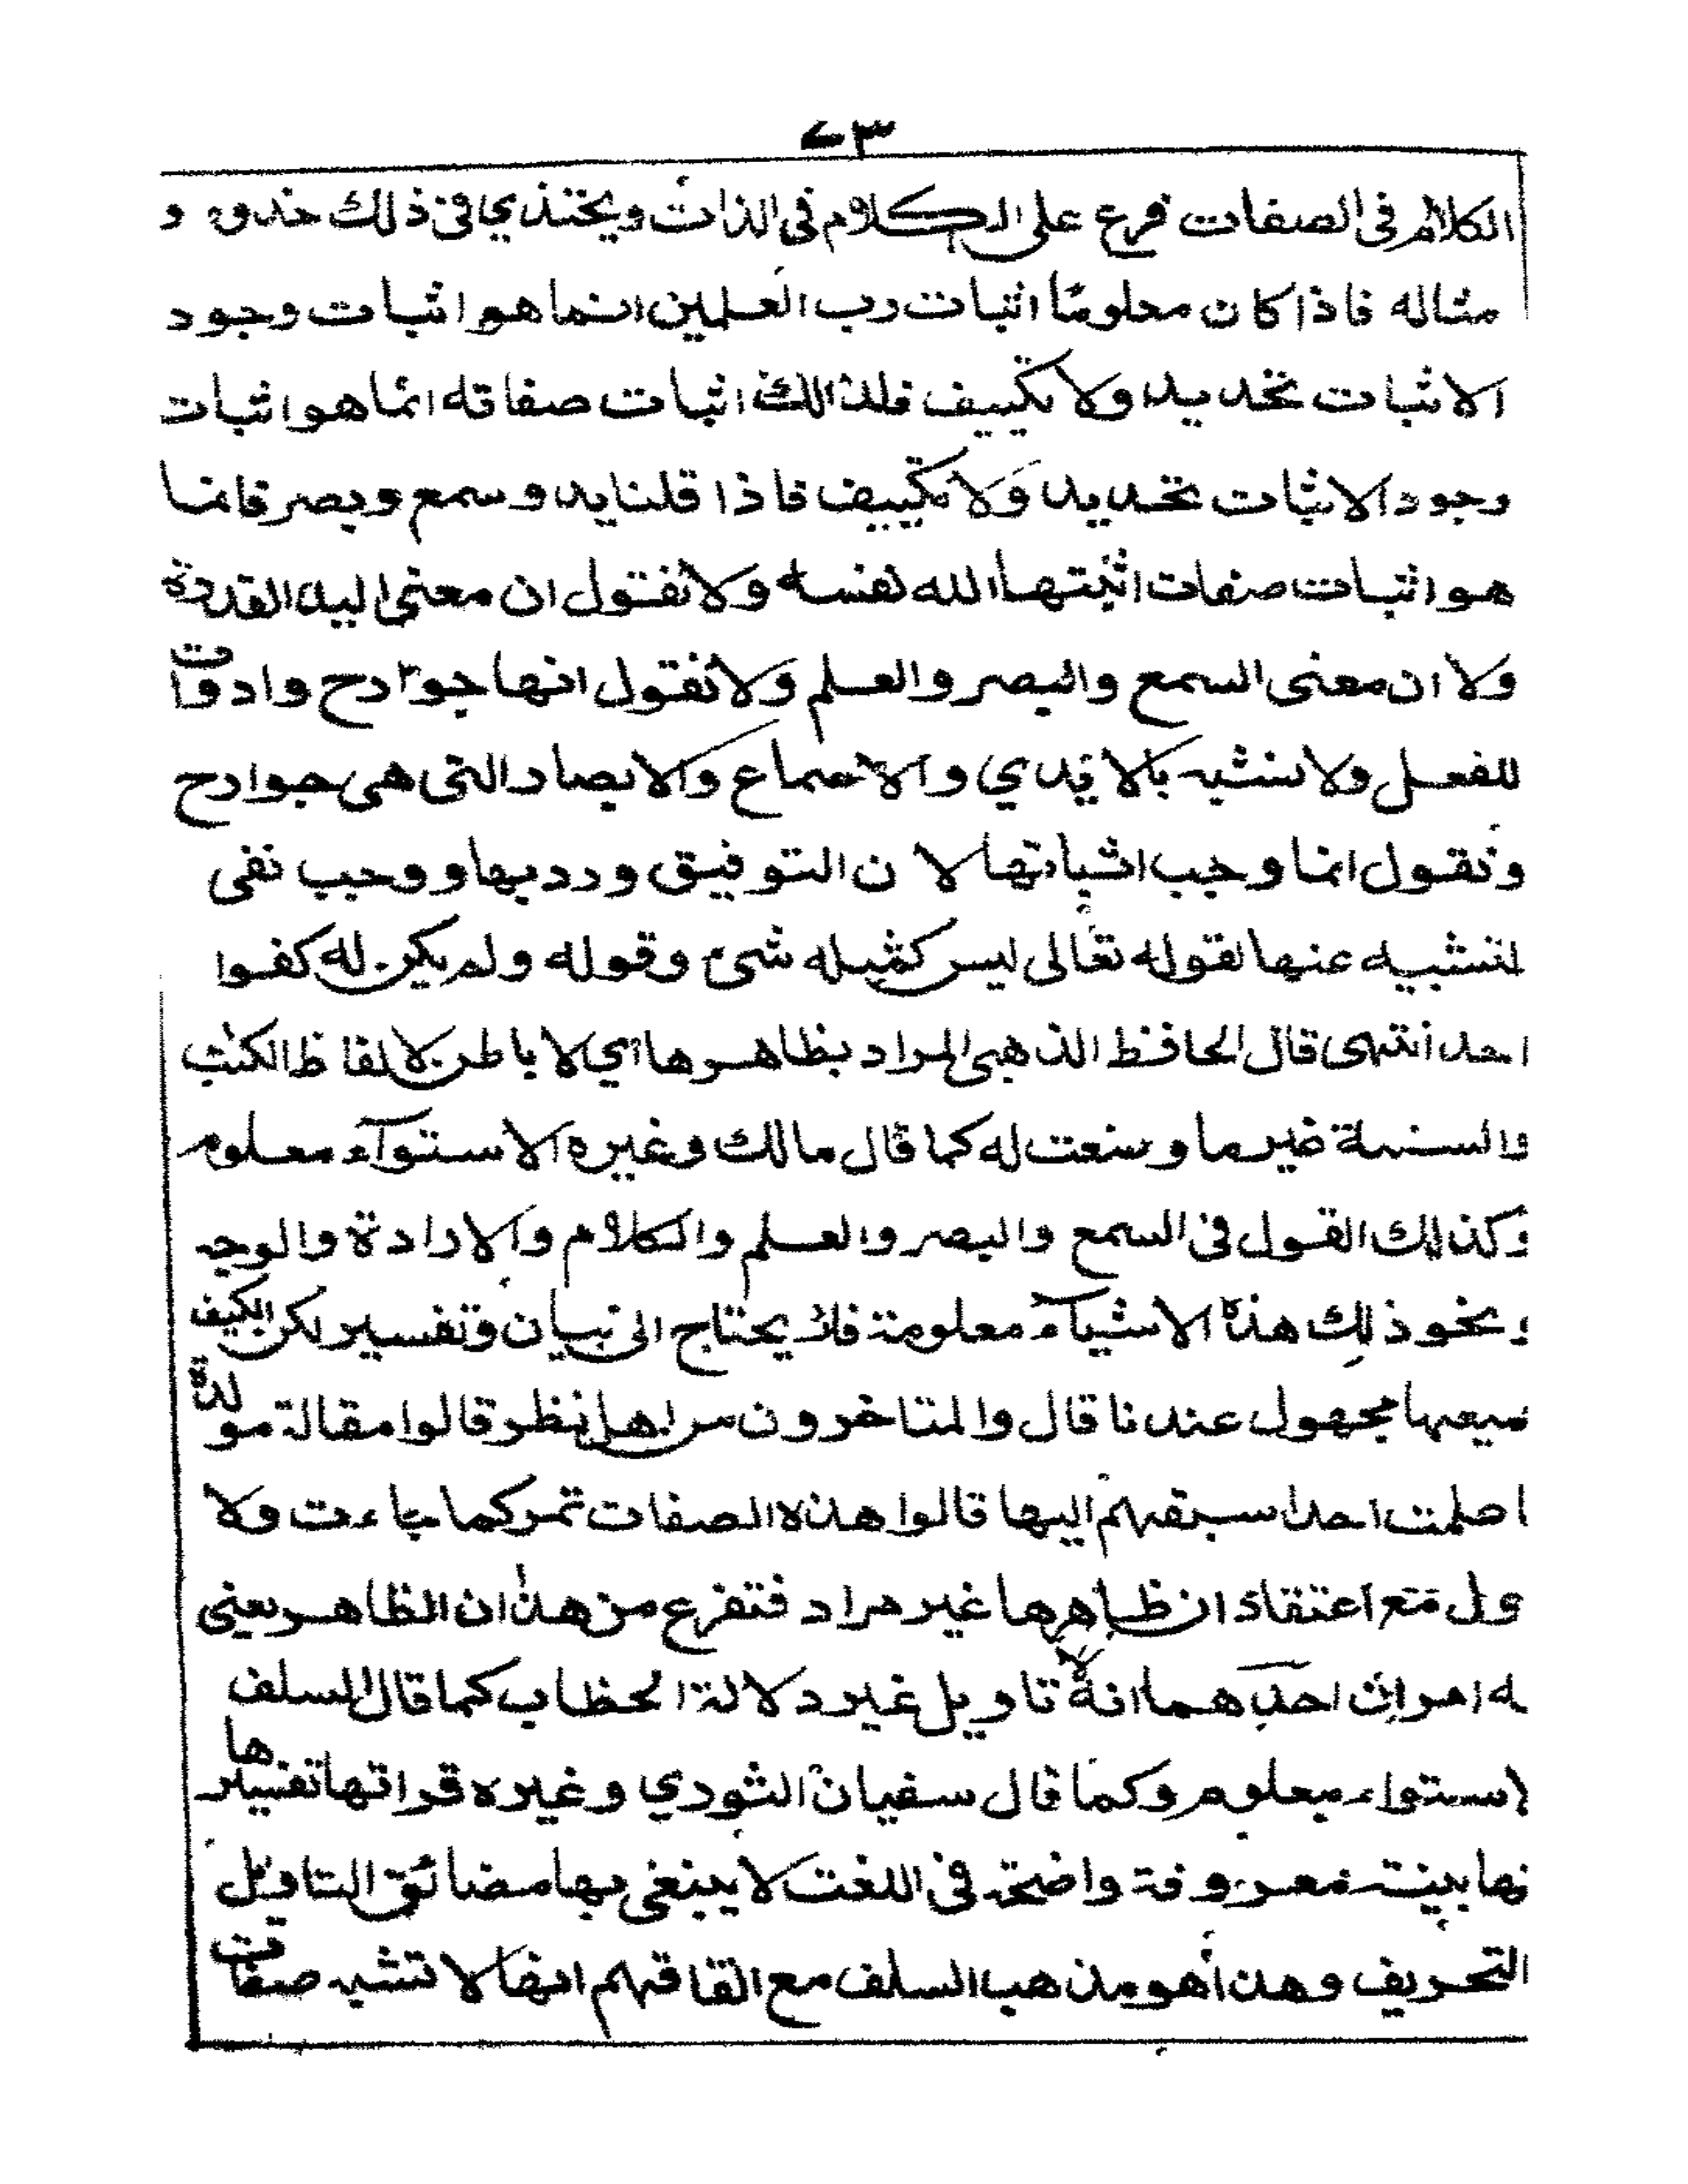 ٧٣
الكلام فى الصفات فرع على الكلام فى الذات ويحتذي فى ذلك حذوه و
مثاله فاذا كان معلومًا اثبات رب العلمين انما هو اثبات وجود
الا ثبات تحديد ولا تكييف فلذالك اثبات صفاته انما هو اثبات
وجود الا ثبات تحديد ولا تكييف فاذا قلنا يد وسمع وبصر فانما
هو اثبات صفات اثبتها الله لنفسه ولا نقول ان معنى اليد القدرة
ولا ان معنى السمع والبصر والعلم ولا نقول انها جوارح وادوات
للفعل ولا نشبه بالا يدي والا سماع والا بصار التى هى جوارح
ونقول انما وجب اثباتها لا ن التوفيق ورد بها ووجب نفى
لتشبيه عنها لقوله تعالى ليس كمثله شىء وقوله ولم يكن له كفوا
احد انتهى قال الحافظ الذهبى المراد بظاهرها اي لا باطن لالفاظ الكتب
والسنة غير ما وضعت له كما قال مالك وغيره الا ستوآء معلوم
وكذلك القول فى السمع والبصر والعلم والكلام والارادة والوجه
و نحو ذلك هذه الاشيآء معلومة فلا يحتاج الى تبيان وتفسير لكن الكيف
جميعها مجهول عندنا قال والمتاخرون من اهل النظر قالوا مقالة مولدة
ا علمت احدا سبقهم اليها قالوا هذه الصفات تمر كما جاءت ولا
ول مع اعتقاد ان ظاهرها غير مراد فتفرع من هذا ان الظاهر يعنى
به امران احدهما انه لا تاويل غير دلالة الخطاب كما قال السلف
لاستواء معلوم وكما قال سفيان الثوري وغيره قراتها تفسيرها
نها بينة معروفة واضحة فى اللغت لا يبتغى بها مضائق التاويل
التحريف وهذا هو مذهب السلف مع اتفاقهم انها لا تشبه صفات